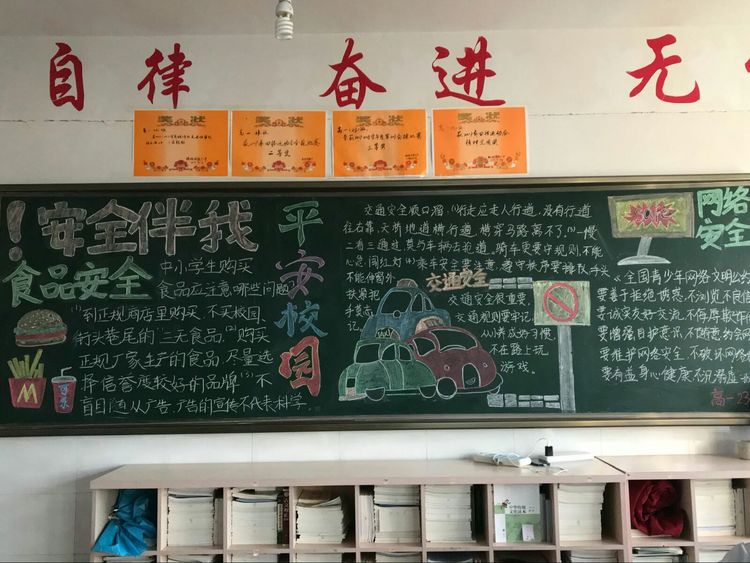 自律 奋进 无
奖状
奖状
二等奖
奖状
三等奖
奖状
精神文明奖
!安全伴我
平安校园
食品安全
中小学生购买
食品应注意哪些问题
(1)到正规商店里购买,不买校园
街头巷尾的"三无食品。(2)购买
正规厂家生产的食品,尽量选
择信誉度较好的品牌(3)不
盲目随从广告,广告的宣传不代表科学。
M
交通安全顺口溜:(1)行走应走人行道,没有行道
往右靠,天桥地道横行道,横穿马路离不了。(2)一慢
二看三通过,莫与车辆去抢道,骑车更要守规则,不能
心急闯红灯(4)乘车安全要注意,遵守秩序要排队,手头
不能伸窗外
扶紧把
手莫忘
记。
交通安全
交通安全很重要,
交通规则要牢记,
从小养成好习惯,
不在路上玩
游戏。
TAXI
网络
安全
《全国青少年网络文明公约
要善于
不浏览不良
要诚实友好交流 不侮辱欺诈
要增强自护意识 不随意约会网
要维护网络安全 不破坏网络
要有益身心健康 不沉溺
高一23